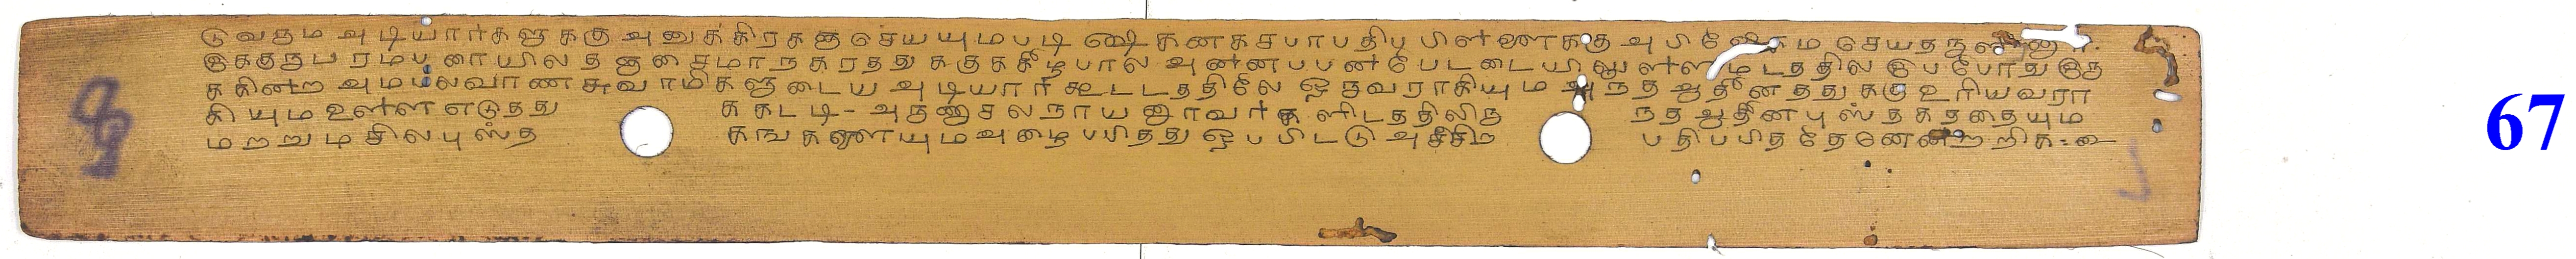 டுவதும அடியார்களுககு அனுக்கிரகஞ செயயுமபடி ஷெ கனகசபாபதிபபிளளைககு அபிஷேகம செயதருளினார்.
இககுருபரமபரையில தருமைமாநகரதது ககுககீழபால அனனபபனபேடடையிலுளள மடததில இபபோது இரு
ககினற அமபலவாண சுவாமிகளுடைய அடியார் கூடடததிலே ஒருவராகியும அநத ஆதீனதது ககு உரியவரா
கியும உளள எடுதது ககடடி - அருணாசல நாயனாரவர்களிடததிலிரு நத ஆதீன புஸ்தகததையும
மறறும சில புஸ்த கஙகளையும அழைபபிதது ஒபபிடடு அசசிற பதிபபிததேனெனறறிக:-
67